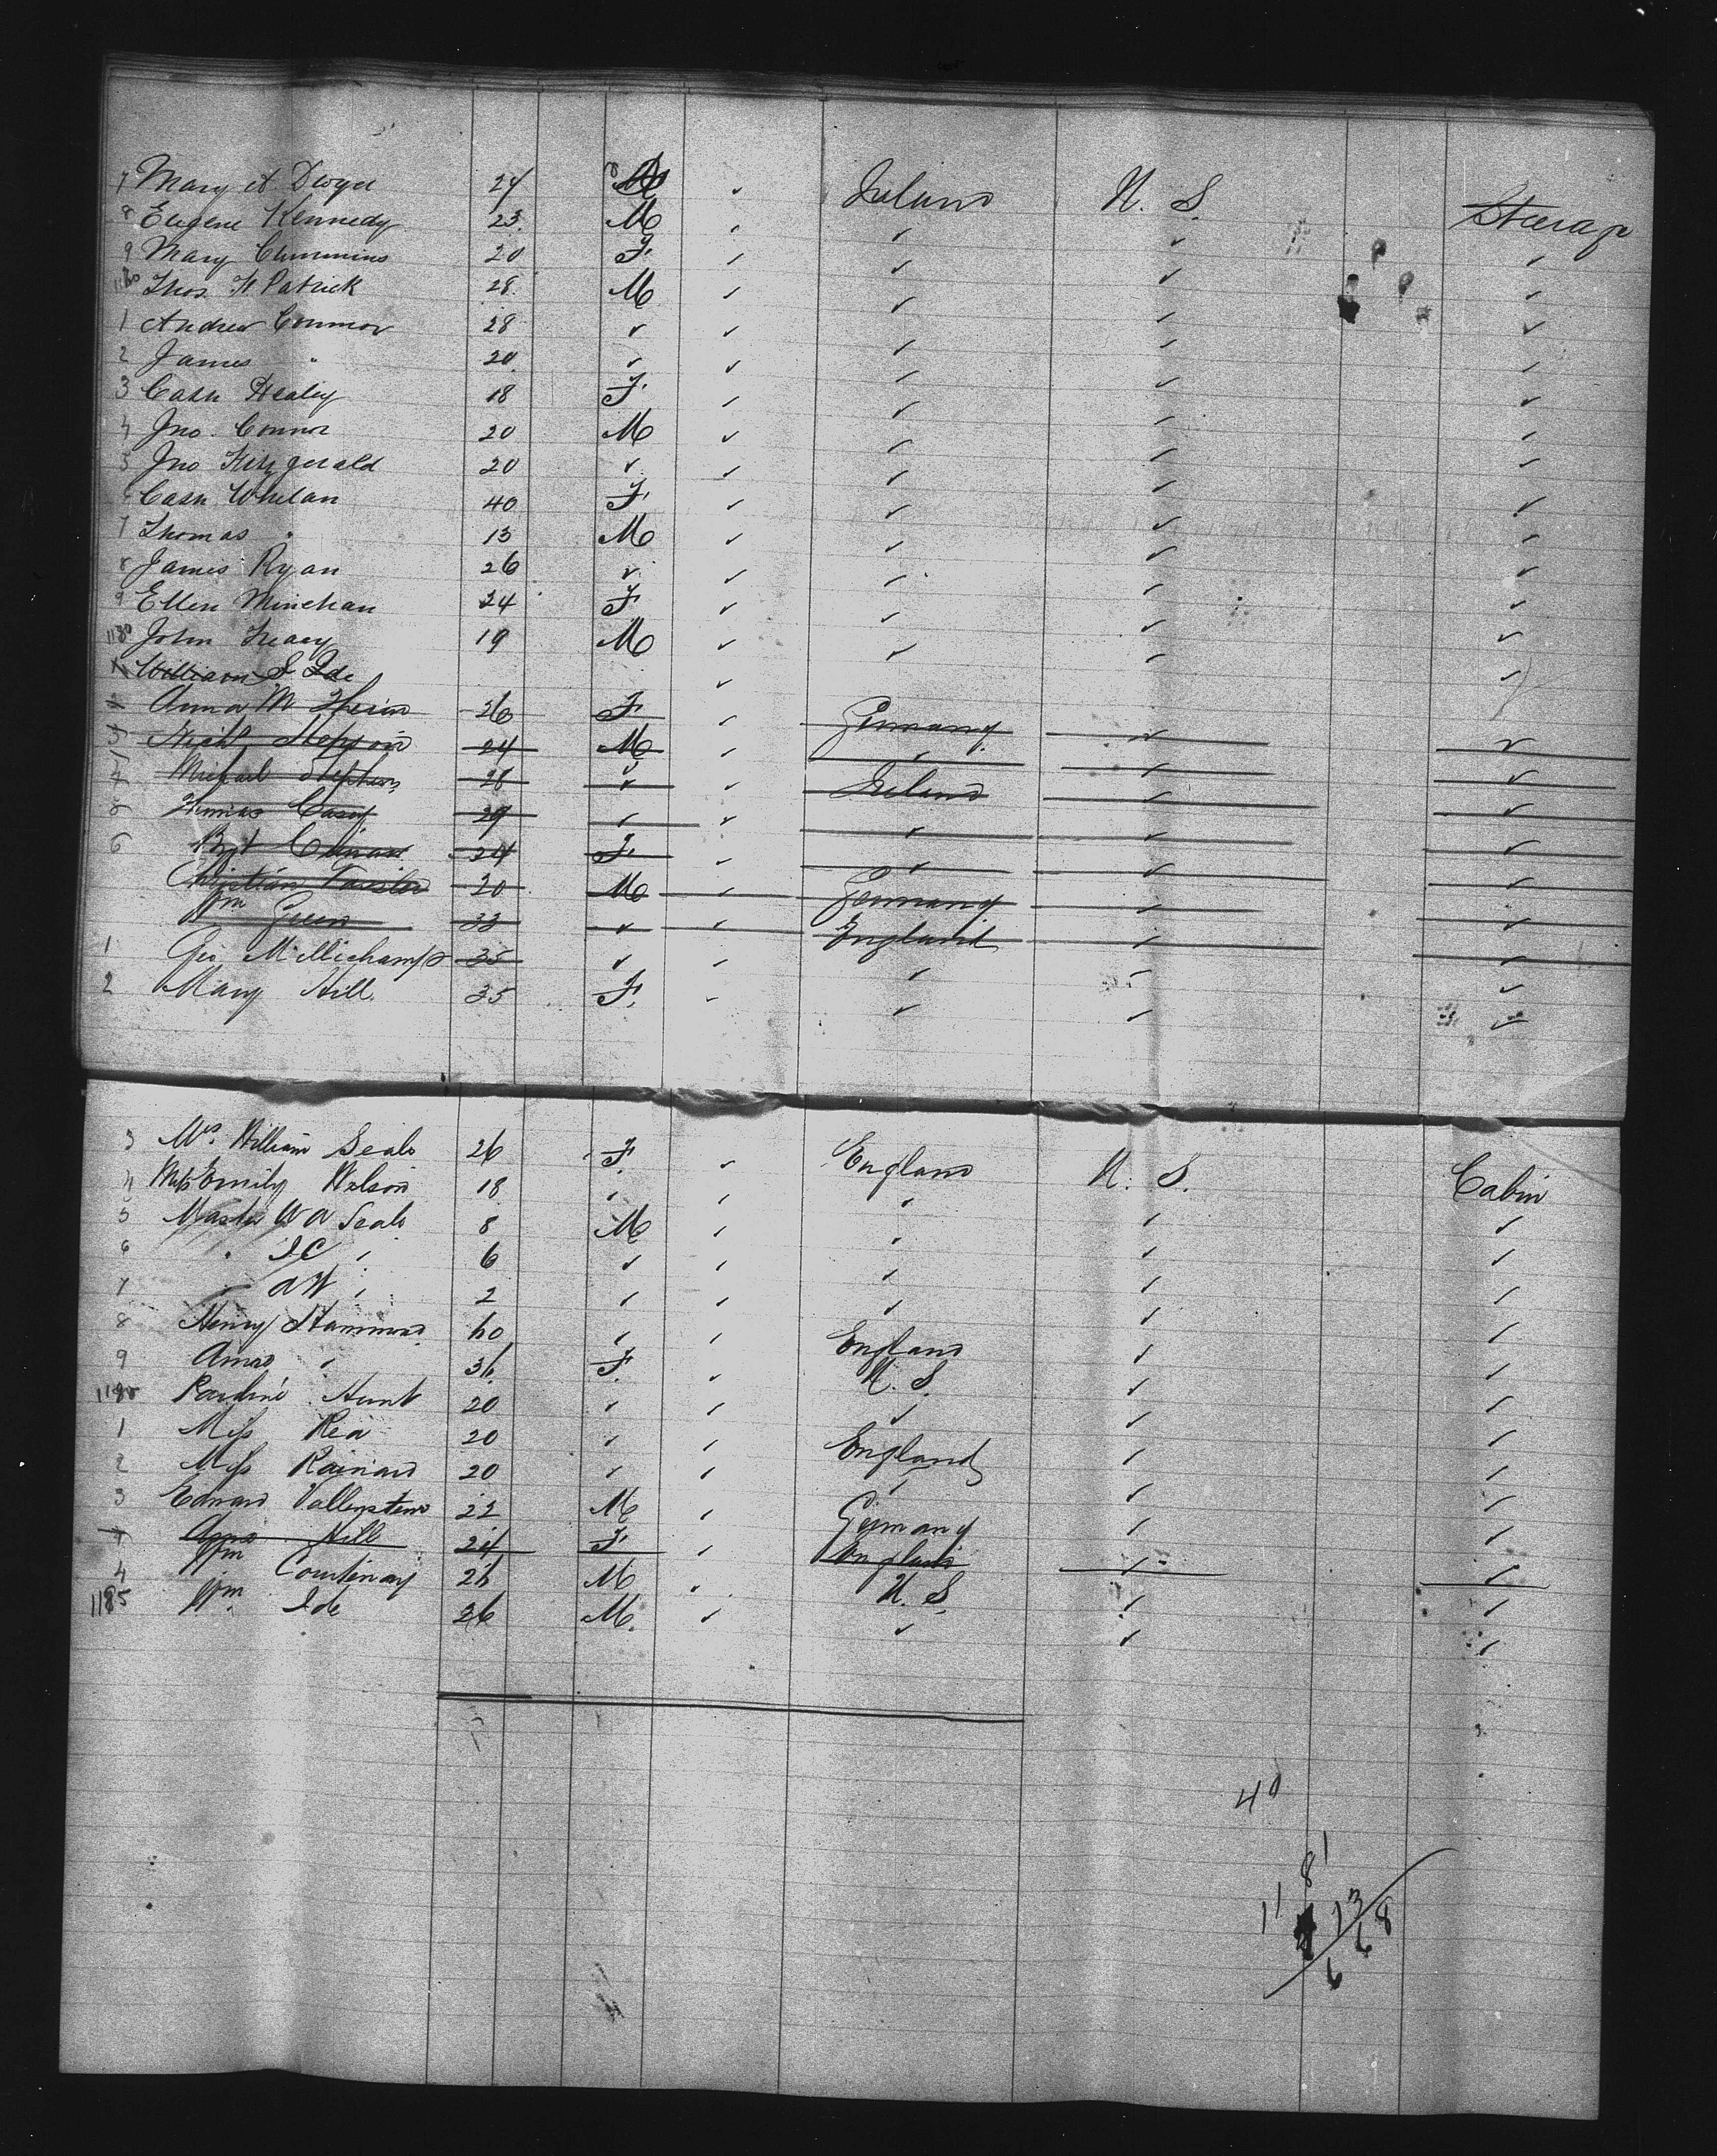 7 Mary A Dwyer 24 M ✓ Ireland U. S. Steerage
8 Eugene Kennedy 23 M ✓ ✓ ✓ ✓
9 Mary Cummins 20 F ✓ ✓ ✓ ✓
Thos F. Patrick 28 M ✓ ✓ ✓ ✓
1 Andrew Connor 28 ✓ ✓ ✓ ✓ ✓
2 James " 20 ✓ ✓ ✓ ✓ ✓
3 Cath Healey 18 F ✓ ✓ ✓ ✓
4 Jno. Connor 20 M ✓ ✓ ✓ ✓
5 Jno Fitzgerald 20 ✓ ✓ ✓ ✓ ✓
6 Cath Whelan 40 F ✓ ✓ ✓ ✓
7 Thomas " 13 M ✓ ✓ ✓ ✓
8 James Ryan 26 ✓ ✓ ✓ ✓ ✓
9 Ellen Minehan 24 F ✓ ✓ ✓ ✓
John Treacy 19 M ✓ ✓ ✓ ✓
1 William S Ide ✓
2 Anna M 26 F ✓ Germany ✓ ✓
3 24 M ✓ ✓ ✓ ✓
4 Michael Stephens 28 ✓ ✓ Ireland ✓ ✓
Thomas Casey 29 ✓ ✓ ✓ ✓ ✓
6 Bgt 24 F ✓ ✓ ✓ ✓
Christian 20 M ✓ Germany ✓ ✓
Wm Green 33 ✓ ✓ England ✓ ✓
1 Geo Millichamp 35 ✓ ✓ ✓ ✓ ✓
2 Mary Hill 35 F. ✓ ✓ ✓ ✓
3 Mrs. William Seale 26 F. ✓ England U. S. Cabin
4 Miss Emily Nelson 18 ✓ ✓ ✓ ✓ ✓
5 Master W A Seale 8 M ✓ ✓ ✓ ✓
6 " I C " 6 ✓ ✓ ✓ ✓ ✓
7 " A W " 2 ✓ ✓ ✓ ✓ ✓
8 Henry Hammond 60 ✓ ✓ England ✓ ✓
9 " 36 F. ✓ U. S. ✓ ✓
1180 Pauline Hunt 20 ✓ ✓ ✓ ✓ ✓
1 Miss Rea 20 ✓ ✓ England ✓ ✓
2 Miss Rainard 20 ✓ ✓ ✓ ✓ ✓
3 Edward Vallenstein 22 M ✓ Germany ✓ ✓
Hill 24 F ✓ England ✓ ✓
4 Wm Courtenay 26 M ✓ U. S. ✓ ✓
1185 Wm. Ide 26 M. ✓ ✓ ✓ ✓
40
8 1
11 13
6 8
6